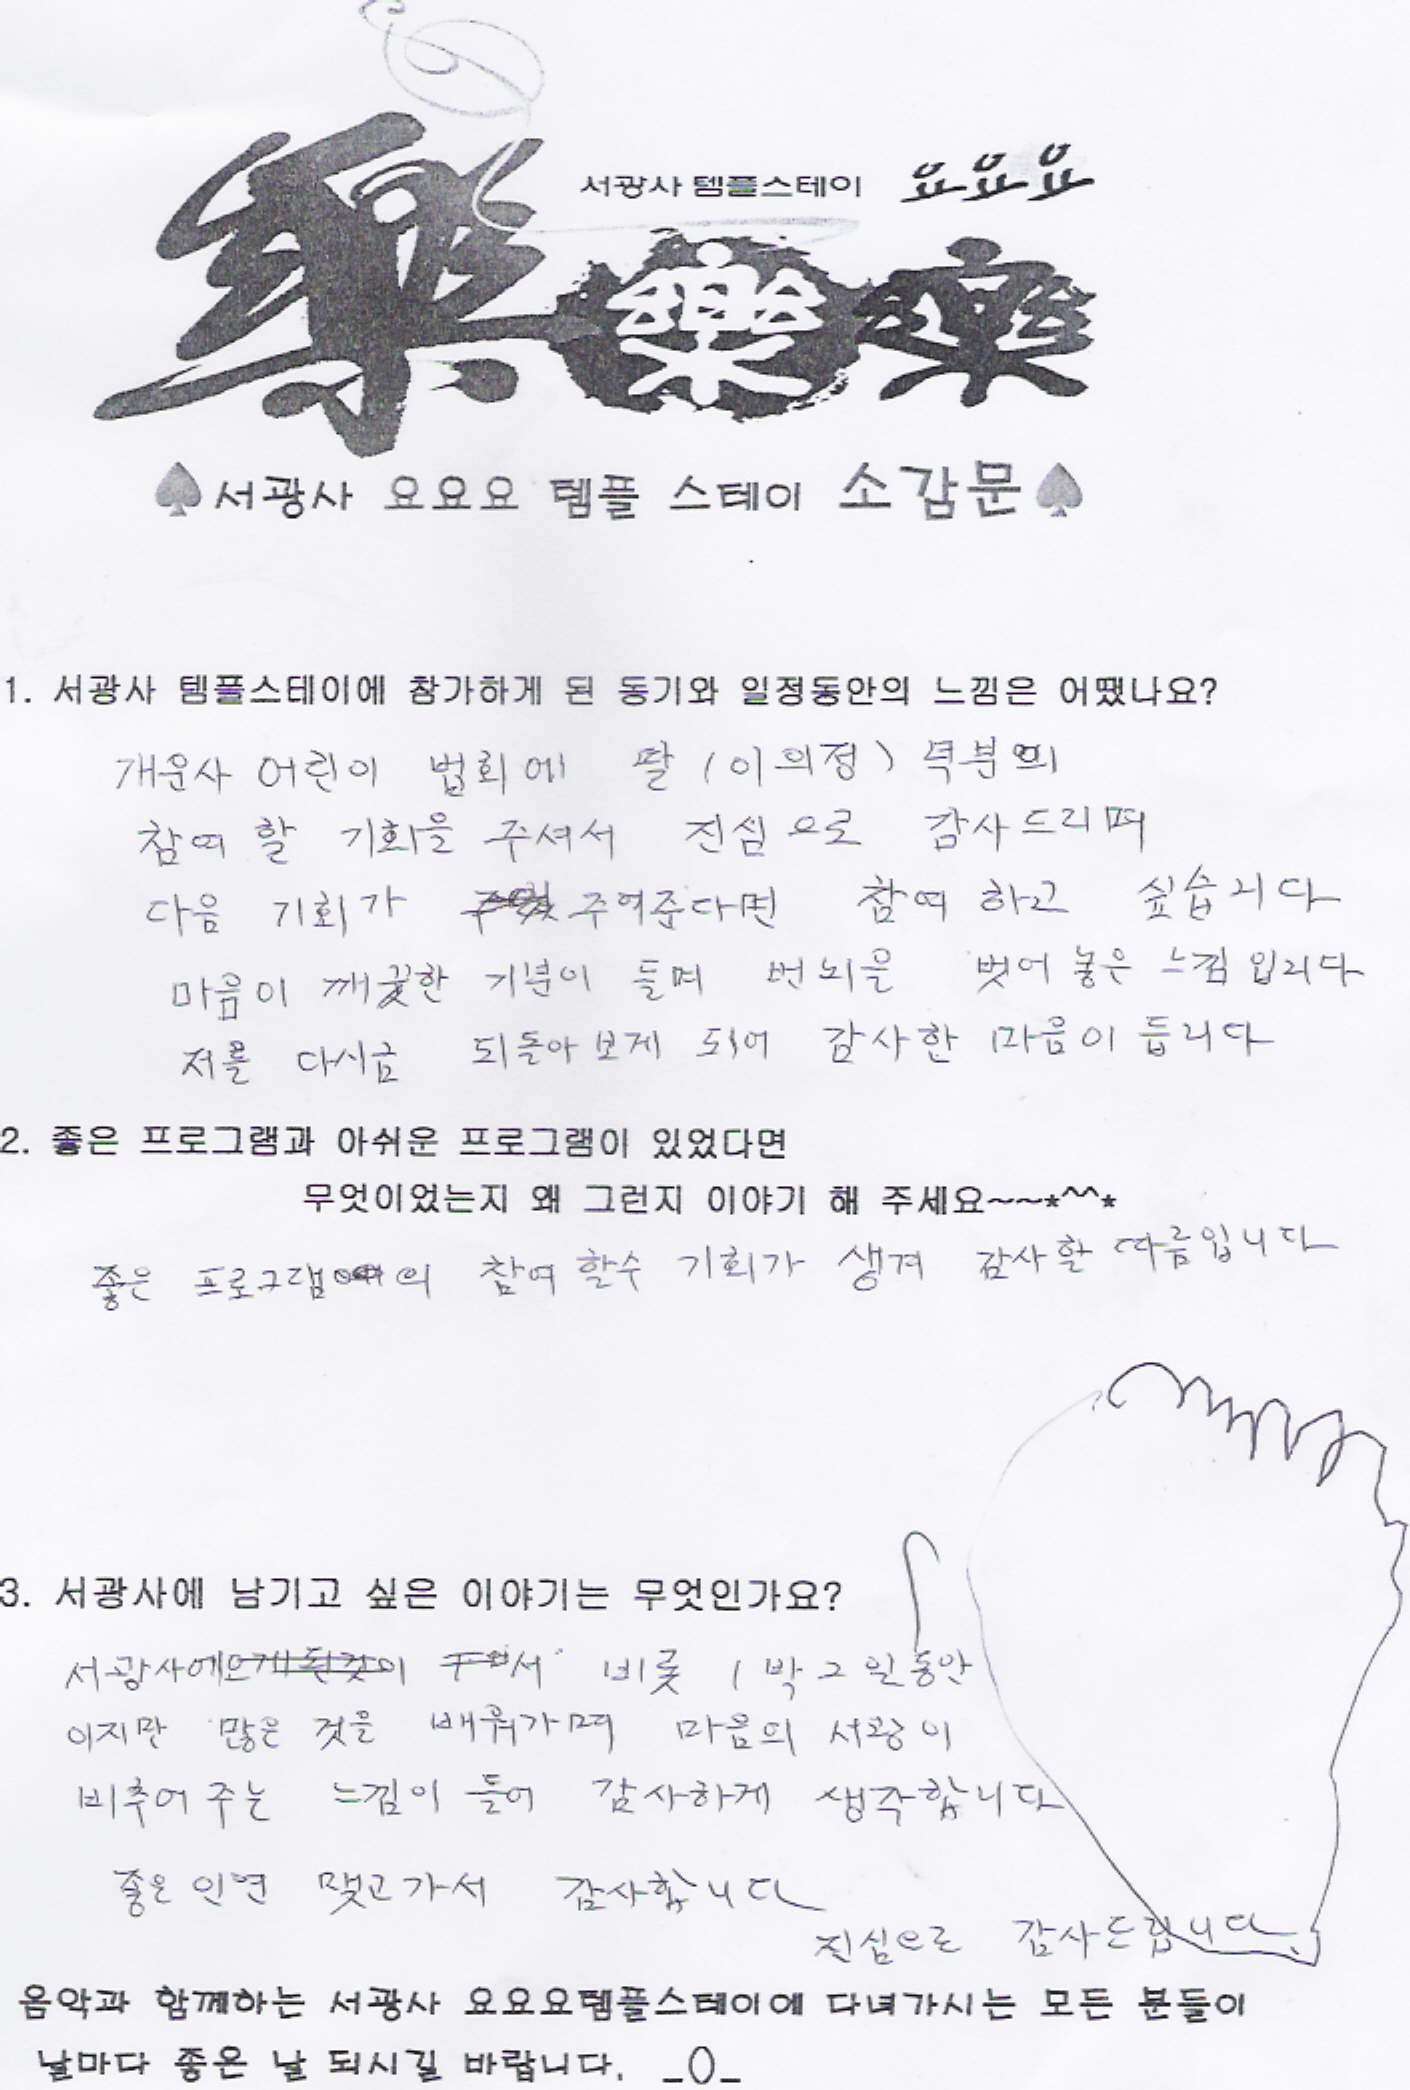 서광사 템플스테이 요요요
樂 樂 樂
♠서광사 요요요 템플 스테이 소감문♠
1. 서광사 템플스테이에 참가하게 된 동기와 일정동안의 느낌은 어땠나요?
개운사 어린이 법회에 딸 (이의정) 덕분의
참여 할 기회을 주셔서 진심으로 감사드리며
다음 기회가 주어준다면 참여 하고 싶습니다
마음이 깨끗한 기분이 들며 번뇌을 벗어 놓은 느낌 입니다
저를 다시금 되돌아 보게 되어 감사한 마음이 듭니다
2. 좋은 프로그램과 아쉬운 프로그램이 있었다면
무엇이었는지 왜 그런지 이야기 해 주세요~~*^^*
좋은 프로그램의 참여 할수 기회가 생겨 감사할 따름입니다
3. 서광사에 남기고 싶은 이야기는 무엇인가요?
서광사에 비롯 1박 2일동안
이지만 많은 것을 배워가며 마음의 서광이
비추어 주는 느낌이 들어 감사하게 생각합니다
좋은 인연 맺고가서 감사합니다
진심으로 감사드립니다
음악과 함께하는 서광사 요요요템플스테이에 다녀가시는 모든 분들이
날마다 좋은 날 되시길 바랍니다. _0_